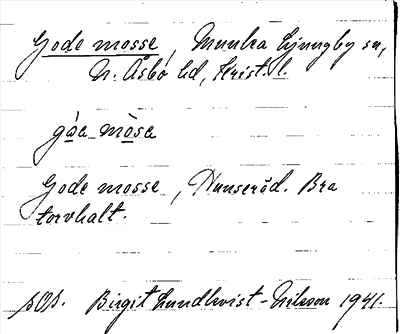 Gode mosse, Munka Ljungby sn,
N. Åsbo hd, Krist. l.
gòa mòsa
Gode mosse, Hunseröd. Bra
torvhalt.
sOs. Birgit Lundkvist-Nilsson 1941.